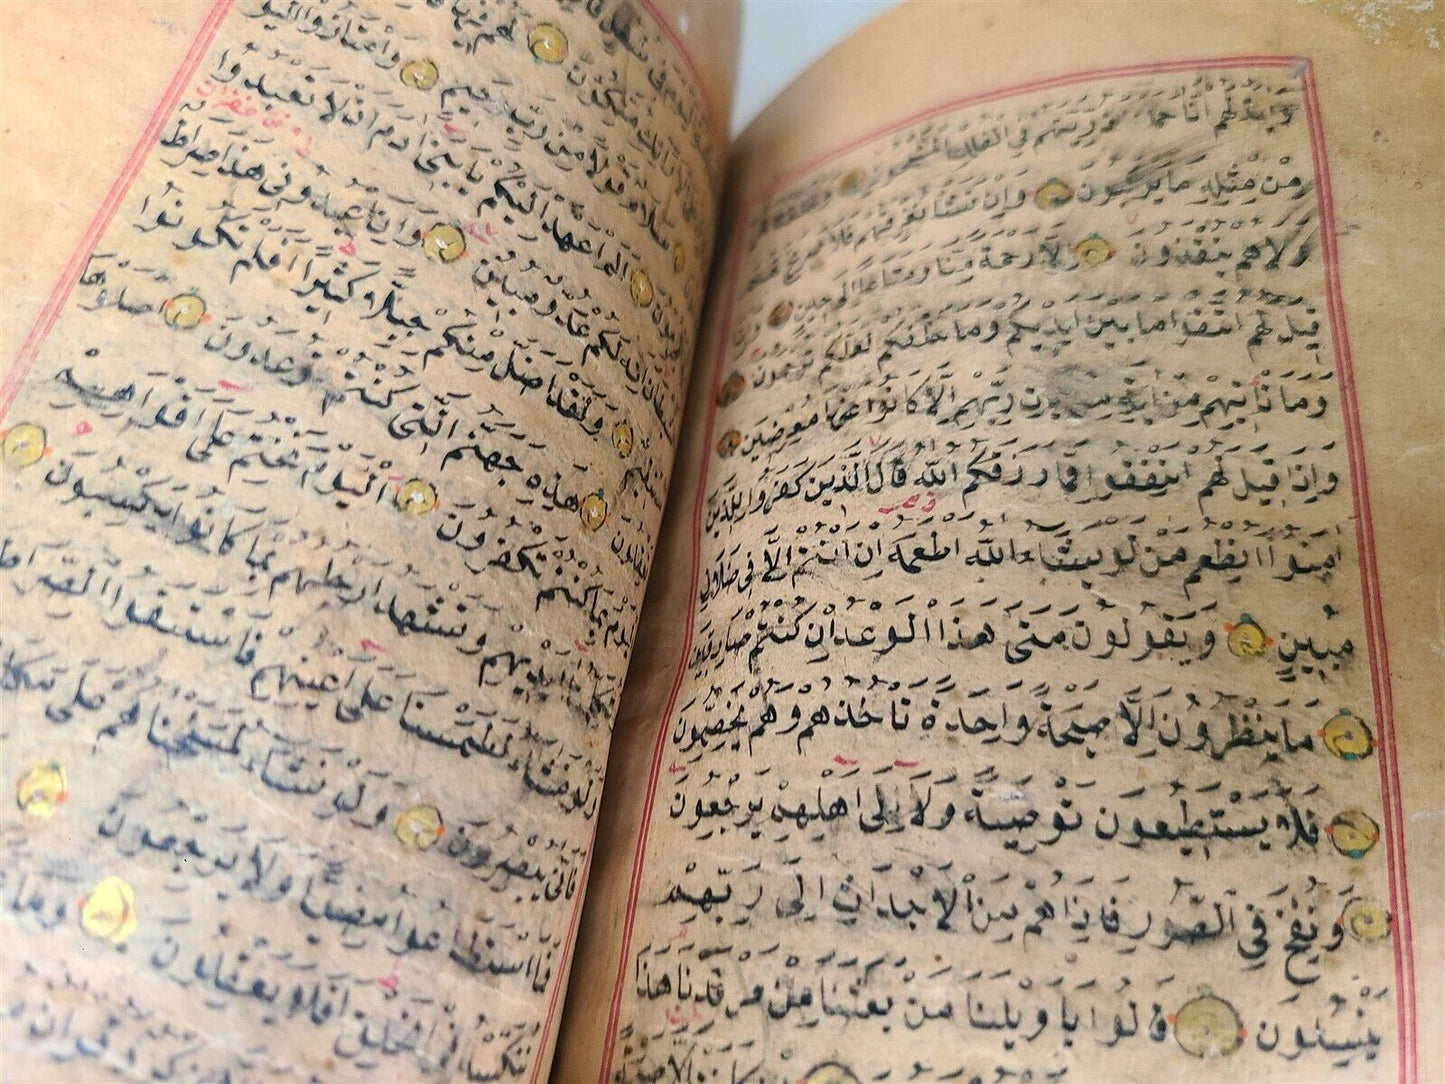 وَاٰيَةٌ لَهُمْ اَنَّا حَمَلْنَا ذُرِّيَّتَهُمْ فِي الْفُلْكِ الْمَشْحُونِ
مِنْ مِثْلِهِ مَا يَرْكَبُونَ وَاِنْ نَشَأْ نُغْرِقْهُمْ فَلَا صَرِيخَ لَهُمْ
وَلَا هُمْ يُنْقَذُونَ اِلَّا رَحْمَةً مِنَّا وَمَتَاعًا اِلٰى حِينٍ وَاِذَا
قِيلَ لَهُمُ اتَّقُوا مَا بَيْنَ اَيْدِيكُمْ وَمَا خَلْفَكُمْ لَعَلَّكُمْ تُرْحَمُونَ
وَمَا تَأْتِيهِمْ مِنْ اٰيَةٍ مِنْ اٰيَاتِ رَبِّهِمْ اِلَّا كَانُوا عَنْهَا مُعْرِضِينَ
وَاِذَا قِيلَ لَهُمْ اَنْفِقُوا مِمَّا رَزَقَكُمُ اللّٰهُ قَالَ الَّذِينَ كَفَرُوا لِلَّذِينَ
اٰمَنُوا اَنُطْعِمُ مَنْ لَوْ يَشَاءُ اللّٰهُ اَطْعَمَهُ اِنْ اَنْتُمْ اِلَّا فِي ضَلَالٍ
مُبِينٍ وَيَقُولُونَ مَتٰى هٰذَا الْوَعْدُ اِنْ كُنْتُمْ صَادِقِينَ
مَا يَنْظُرُونَ اِلَّا صَيْحَةً وَاحِدَةً تَأْخُذُهُمْ وَهُمْ يَخِصِّمُونَ
فَلَا يَسْتَطِيعُونَ تَوْصِيَةً وَلَا اِلٰى اَهْلِهِمْ يَرْجِعُونَ
وَنُفِخَ فِي الصُّورِ فَاِذَا هُمْ مِنَ الْاَجْدَاثِ اِلٰى رَبِّهِمْ
يَنْسِلُونَ قَالُوا يَا وَيْلَنَا مَنْ بَعَثَنَا مِنْ مَرْقَدِنَا هٰذَا
لَهُمْ فِيهَا
سَلَامٌ قَوْلًا مِنْ رَبٍّ رَحِيمٍ وَامْتَازُوا الْيَوْمَ
اَلَمْ اَعْهَدْ اِلَيْكُمْ يَا بَنِي اٰدَمَ اَنْ لَا تَعْبُدُوا
الشَّيْطَانَ اِنَّهُ لَكُمْ عَدُوٌّ مُبِينٌ وَاَنِ اعْبُدُونِي هٰذَا صِرَاطٌ
مُسْتَقِيمٌ وَلَقَدْ اَضَلَّ مِنْكُمْ جِبِلًّا كَثِيرًا اَفَلَمْ تَكُونُوا
تَعْقِلُونَ هٰذِهِ جَهَنَّمُ الَّتِي كُنْتُمْ تُوعَدُونَ اِصْلَوْهَا
الْيَوْمَ بِمَا كُنْتُمْ تَكْفُرُونَ اَلْيَوْمَ نَخْتِمُ عَلٰى اَفْوَاهِهِمْ
وَتُكَلِّمُنَا اَيْدِيهِمْ وَتَشْهَدُ اَرْجُلُهُمْ بِمَا كَانُوا يَكْسِبُونَ
وَلَوْ نَشَاءُ لَطَمَسْنَا عَلٰى اَعْيُنِهِمْ فَاسْتَبَقُوا الصِّرَاطَ
فَاَنّٰى يُبْصِرُونَ وَلَوْ نَشَاءُ لَمَسَخْنَاهُمْ عَلٰى مَكَانَتِهِمْ
فَمَا اسْتَطَاعُوا مُضِيًّا وَلَا يَرْجِعُونَ
نُنَكِّسْهُ فِي الْخَلْقِ اَفَلَا يَعْقِلُونَ وَمَا